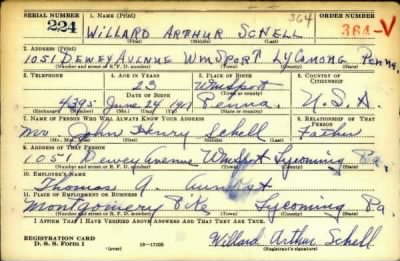 SERIAL NUMBER 1. NAME (Print) 364 ORDER NUMBER
224 WILLARD ARTHUR SCHELL 364-V
(First) (Middle) (Last)
2. ADDRESS (Print)
1051 DEWEY AVENUE WMSPORT LYCOMING Penna.
(Number and street or R. F. D. number) (Town) (County) (State)
3. TELEPHONE 4. AGE IN YEARS 5. PLACE OF BIRTH 6. COUNTRY OF CITIZENSHIP
23 Wmsport
DATE OF BIRTH (Town or county)
4395 June 24 1917 Penna. U.S.A.
(Mo.) (Day) (Yr.) (State or country)
7. NAME OF PERSON WHO WILL ALWAYS KNOW YOUR ADDRESS 8. RELATIONSHIP OF THAT PERSON
Mr. John Henry Schell Father
(Mr., Mrs., Miss) (First) (Middle) (Last)
9. ADDRESS OF THAT PERSON
1051 Dewey Avenue Wmsport Lycoming Pa.
(Number and street or R. F. D. number) (Town) (County) (State)
10. EMPLOYER'S NAME
Thomas A.
11. PLACE OF EMPLOYMENT OR BUSINESS
Montgomery Pike Lycoming Pa
(Number and street or R. F. D. number) (Town) (County) (State)
I AFFIRM THAT I HAVE VERIFIED ABOVE ANSWERS AND THAT THEY ARE TRUE.
REGISTRATION CARD
D. S. S. Form 1 (over) 16-17105 Willard Arthur Schell
(Registrant's signature)